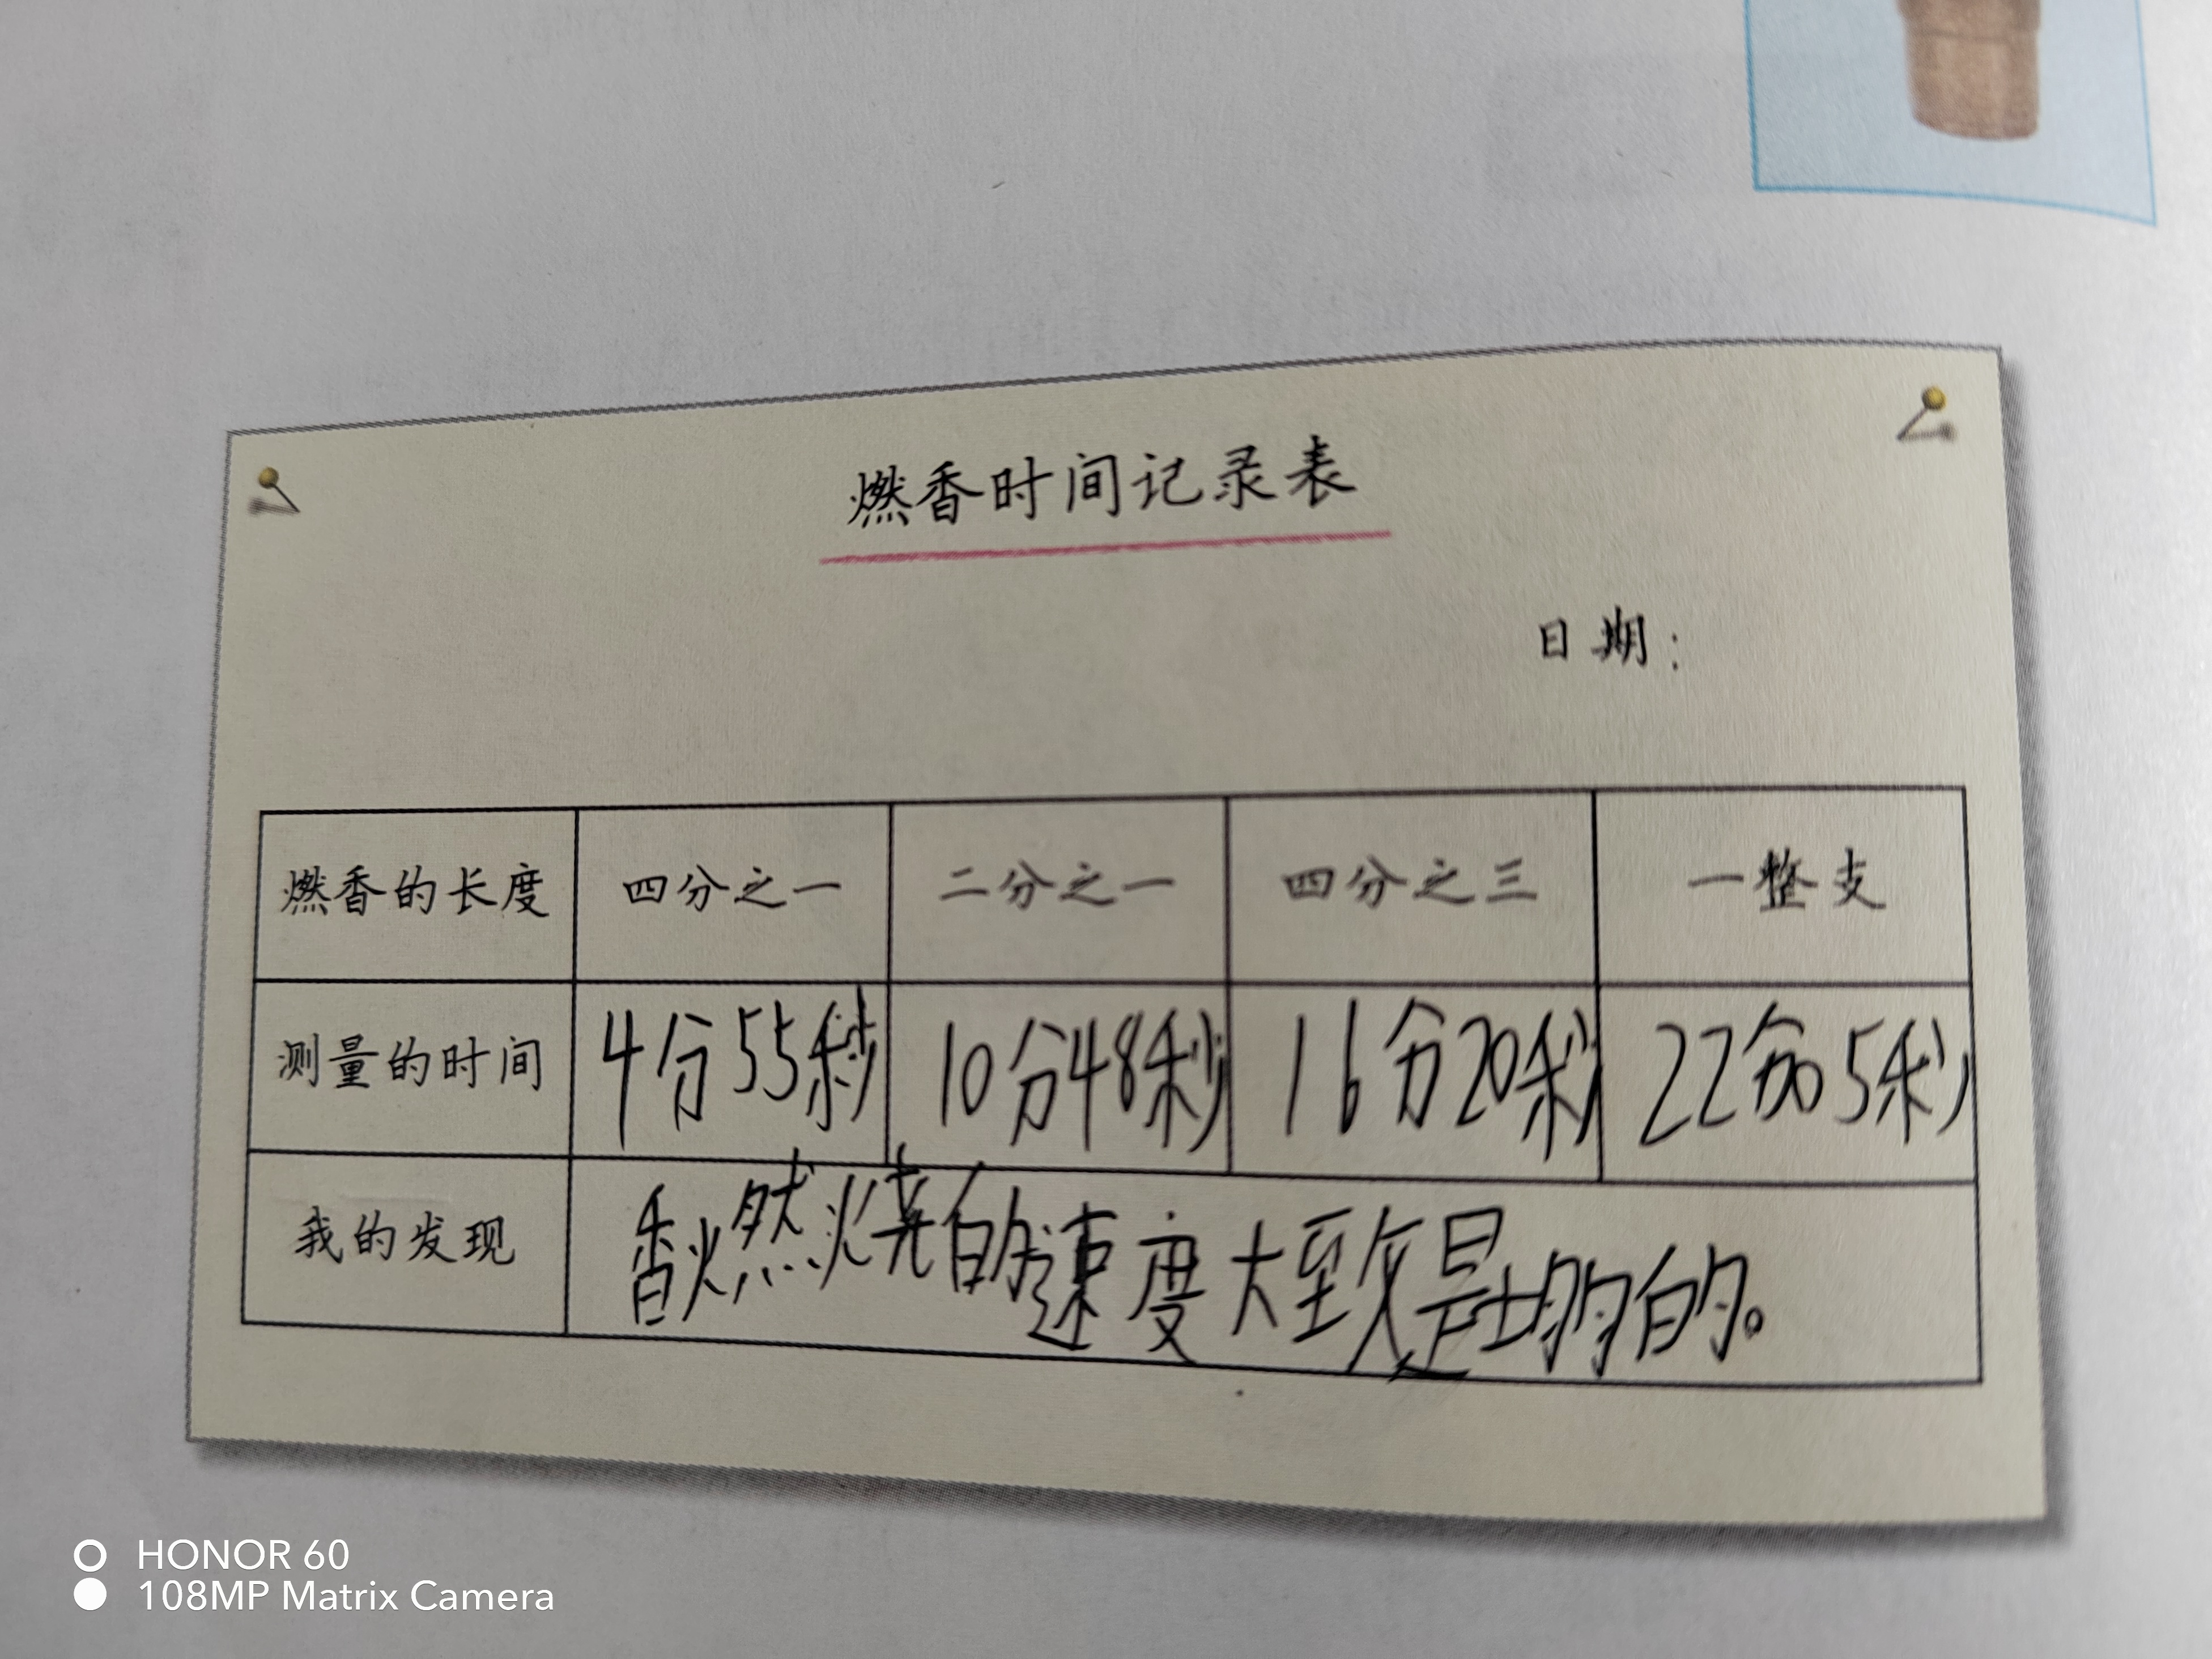 燃香时间记录表
日期：
燃香的长度 四分之一 二分之一 四分之三 一整支
测量的时间 4分55秒 10分48秒 16分20秒 22分05秒
我的发现 香燃烧的速度大致是均匀的。
HONOR 60
108MP Matrix Camera